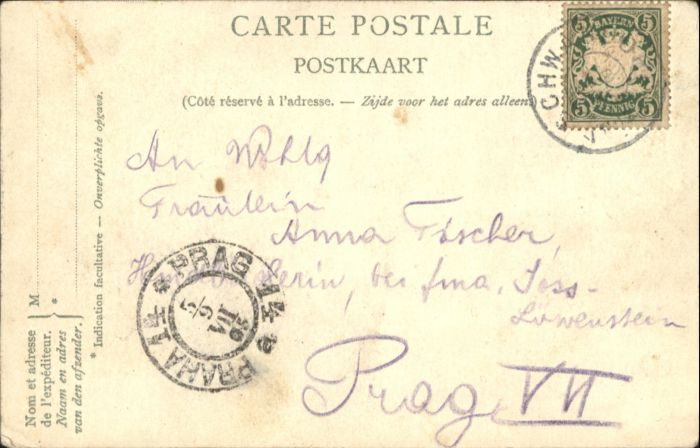 CARTE POSTALE
POSTKAART
(Côté réservé à l'adresse. — Zijde voor het adres alleen
BAYERN
5 5
5 5
PFENNIG
CHW
An Wohlg
Fräulein
Anna Fischer,
bei Fma. Joss-
Löwenstein
Prag VII
* PRAG 14 *
PRAHA 14
* Indication facultative — Onverplichte opgave.
M *
Nom et adresse
de l'expéditeur.
Naam en adres
van den afzender.